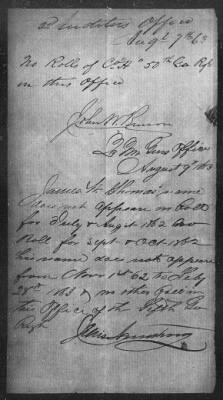 2 Auditors Office
Aug 7th 63
No Rolls of Co "H" 50th Ga Regt
in this office
John W.
Q M Genl Office
August 9 1863
James M. Thomas' name
does not appear on Roll
for July & Augst 1862 nor
Roll for Sept & Oct 1862
his name does not appear
from Nov 1st 62 to Feby
28th 1863 & no other Rolls in
the Office of the Fiftieth Geo
Regt